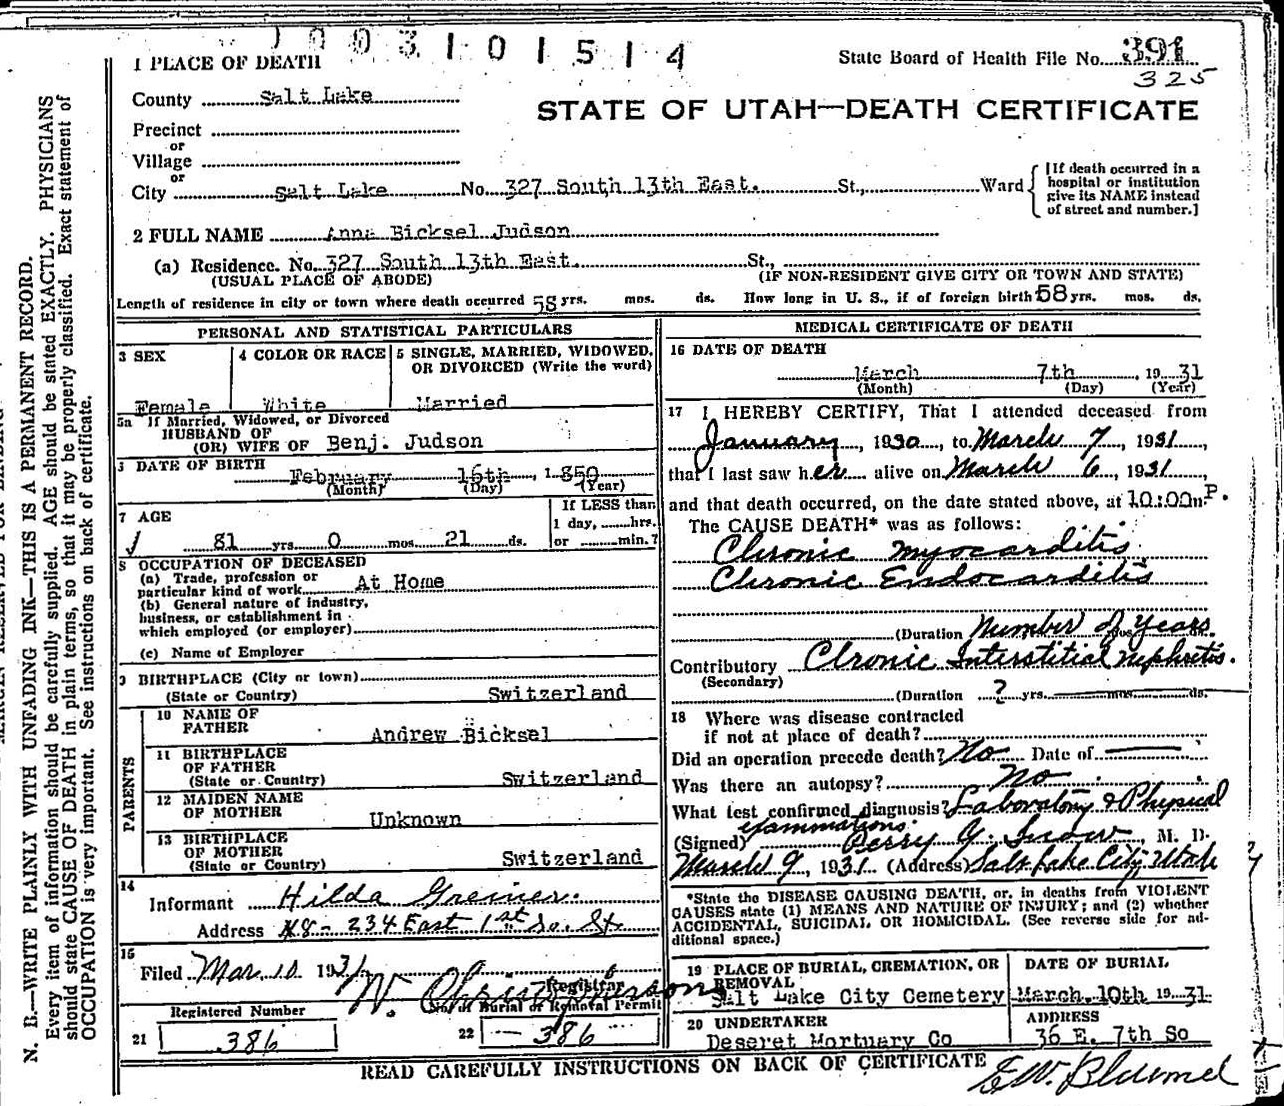 1003101514
State Board of Health File No. 391
325
1 PLACE OF DEATH
County Salt Lake
STATE OF UTAH—DEATH CERTIFICATE
Precinct
or
Village
or
City Salt Lake No. 327 South 13th East. St., Ward
[If death occurred in a hospital or institution give its NAME instead of street and number.]
2 FULL NAME Anna Bicksel Judson
(a) Residence. No. 327 South 13th East. St.,
(USUAL PLACE OF ABODE) (IF NON-RESIDENT GIVE CITY OR TOWN AND STATE)
Length of residence in city or town where death occurred 58 yrs. mos. ds. How long in U. S., if of foreign birth 58 yrs. mos. ds.
PERSONAL AND STATISTICAL PARTICULARS
3 SEX 4 COLOR OR RACE 5 SINGLE, MARRIED, WIDOWED,
OR DIVORCED (Write the word)
Female White Married
5a If Married, Widowed, or Divorced
HUSBAND OF
(OR) WIFE OF Benj. Judson
DATE OF BIRTH
February 15th, 1850
(Month) (Day) (Year)
7 AGE
If LESS than
1 day, hrs.
81 yrs. 0 mos. 21 ds. or min.?
8 OCCUPATION OF DECEASED
(a) Trade, profession or
particular kind of work At Home
(b) General nature of industry,
business, or establishment in
which employed (or employer)
(c) Name of Employer
9 BIRTHPLACE (City or town)
(State or Country) Switzerland
PARENTS
10 NAME OF
FATHER Andrew Bicksel
11 BIRTHPLACE
OF FATHER
(State or Country) Switzerland
12 MAIDEN NAME
OF MOTHER Unknown
13 BIRTHPLACE
OF MOTHER
(State or Country) Switzerland
14
Informant Hilda Greiner.
Address #8- 234 East 1st So. St.
15
Filed Mar. 10. 1931
Registrar
No. of Burial or Removal Permit
Registered Number
21 386 22 — 386
MEDICAL CERTIFICATE OF DEATH
16 DATE OF DEATH
March 7th, 1931
(Month) (Day) (Year)
17 I HEREBY CERTIFY, That I attended deceased from
January, 1930, to March 7, 1931,
that I last saw her alive on March 6, 1931,
and that death occurred, on the date stated above, at 10:00m P.
The CAUSE DEATH* was as follows:
Chronic myocarditis
Chronic Endocarditis
(Duration Number of years.
Contributory Chronic Interstitial Nephritis.
(Secondary)
(Duration ? yrs. mos. ds.
18 Where was disease contracted
if not at place of death?
Did an operation precede death? No Date of —
Was there an autopsy? No
What test confirmed diagnosis? Laboratory & Physical
examinations.
(Signed) Perry G. Snow, M. D.
March 9, 1931 (Address) Salt Lake City, Utah
*State the DISEASE CAUSING DEATH, or, in deaths from VIOLENT
CAUSES state (1) MEANS AND NATURE OF INJURY; and (2) whether
ACCIDENTAL, SUICIDAL OR HOMICIDAL. (See reverse side for ad-
ditional space.)
19 PLACE OF BURIAL, CREMATION, OR
REMOVAL
Salt Lake City Cemetery
DATE OF BURIAL
March 10th 1931
20 UNDERTAKER
Deseret Mortuary Co
ADDRESS
36 E. 7th So
READ CAREFULLY INSTRUCTIONS ON BACK OF CERTIFICATE
N. B.—WRITE PLAINLY WITH UNFADING INK—THIS IS A PERMANENT RECORD.
Every item of information should be carefully supplied. AGE should be stated EXACTLY. PHYSICIANS
should state CAUSE OF DEATH in plain terms, so that it may be properly classified. Exact statement of
OCCUPATION is very important. See instructions on back of certificate.